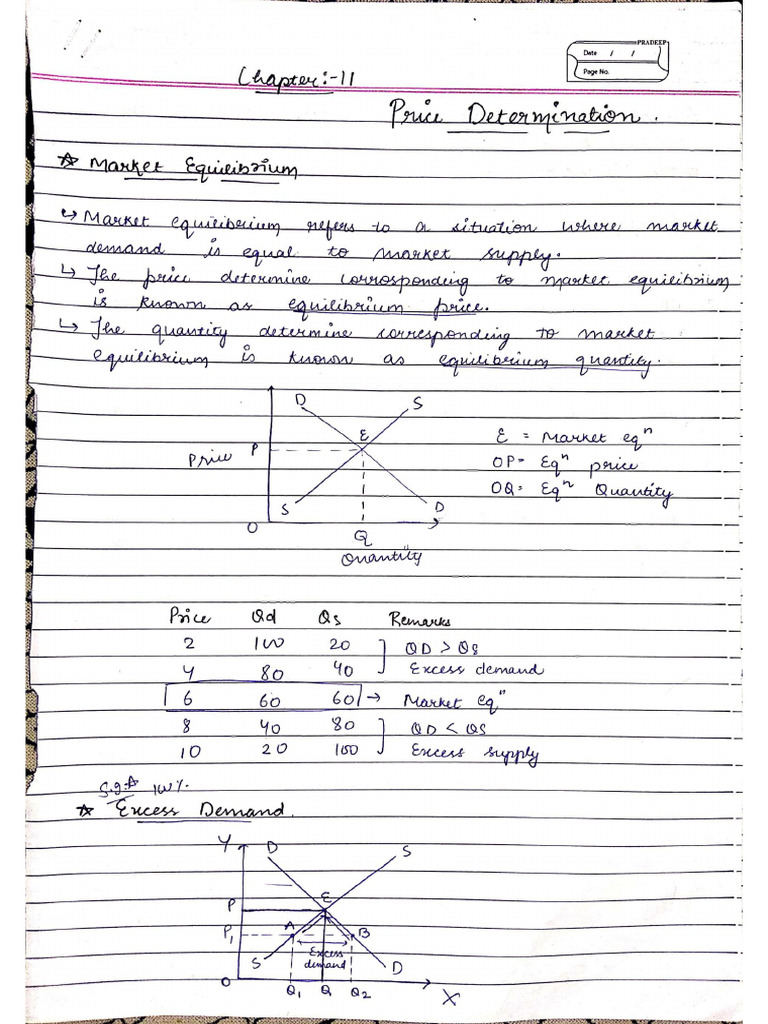 PRADEEP
Date / /
Page No.
Chapter:-11
Price Determination.
☆ Market Equilibrium
↳ Market equilibrium refers to a situation where market
demand is equal to market supply.
↳ The price determine corrosponding to market equilibrium
is known as equilibrium price.
↳ The quantity determine corresponding to market
equilibrium is known as equilibrium quantity.
D S
E
Price P
S D
O
Q
Quantity
E = Market eqⁿ
OP = Eqⁿ price
OQ = Eqⁿ Quantity
Price Qd Qs Remarks
2 100 20 ] QD > QS
4 80 40 Excess demand
6 60 60 → Market eqⁿ
8 40 80 ] QD < QS
10 20 100 Excess supply
100%.
☆ Excess Demand.
Y D S
E
P
P₁ A B
Excess
demand
S D
O Q₁ Q Q₂ X